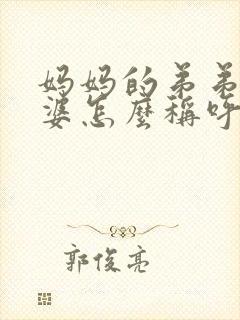 妈妈的弟弟
婆怎麼稱呼
郭俊亮